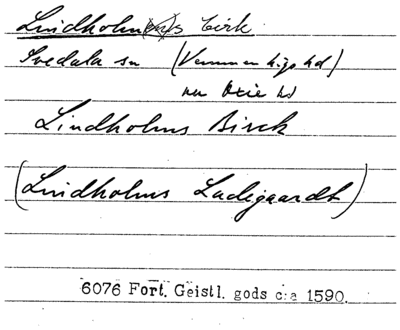 Lindholms birk
Svedala sn (Vemmenhögs hd)
nu Oxie hd
Lindholms Birck
(Lindholms Ladegaardt)
6076 Fort. Geistl. gods c:a 1590.